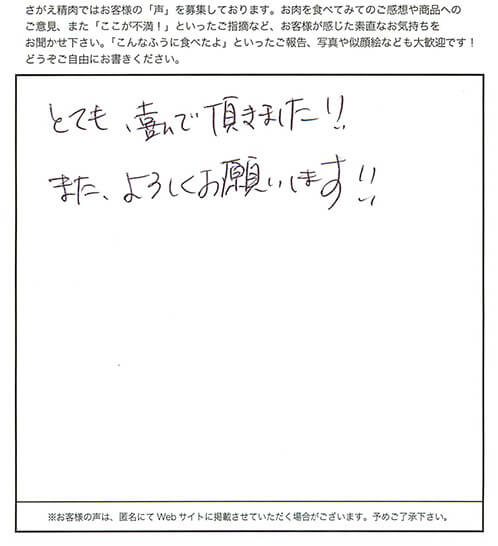 さがえ精肉ではお客様の「声」を募集しております。お肉を食べてみてのご感想や商品への
ご意見、また「ここが不満！」といったご指摘など、お客様が感じた素直なお気持ちを
お聞かせ下さい。「こんなふうに食べたよ」といったご報告、写真や似顔絵なども大歓迎です！
どうぞご自由にお書きください。
とても、喜んで頂きました!!
また、よろしくお願いします!!
※お客様の声は、匿名にてWebサイトに掲載させていただく場合がございます。予めご了承下さい。